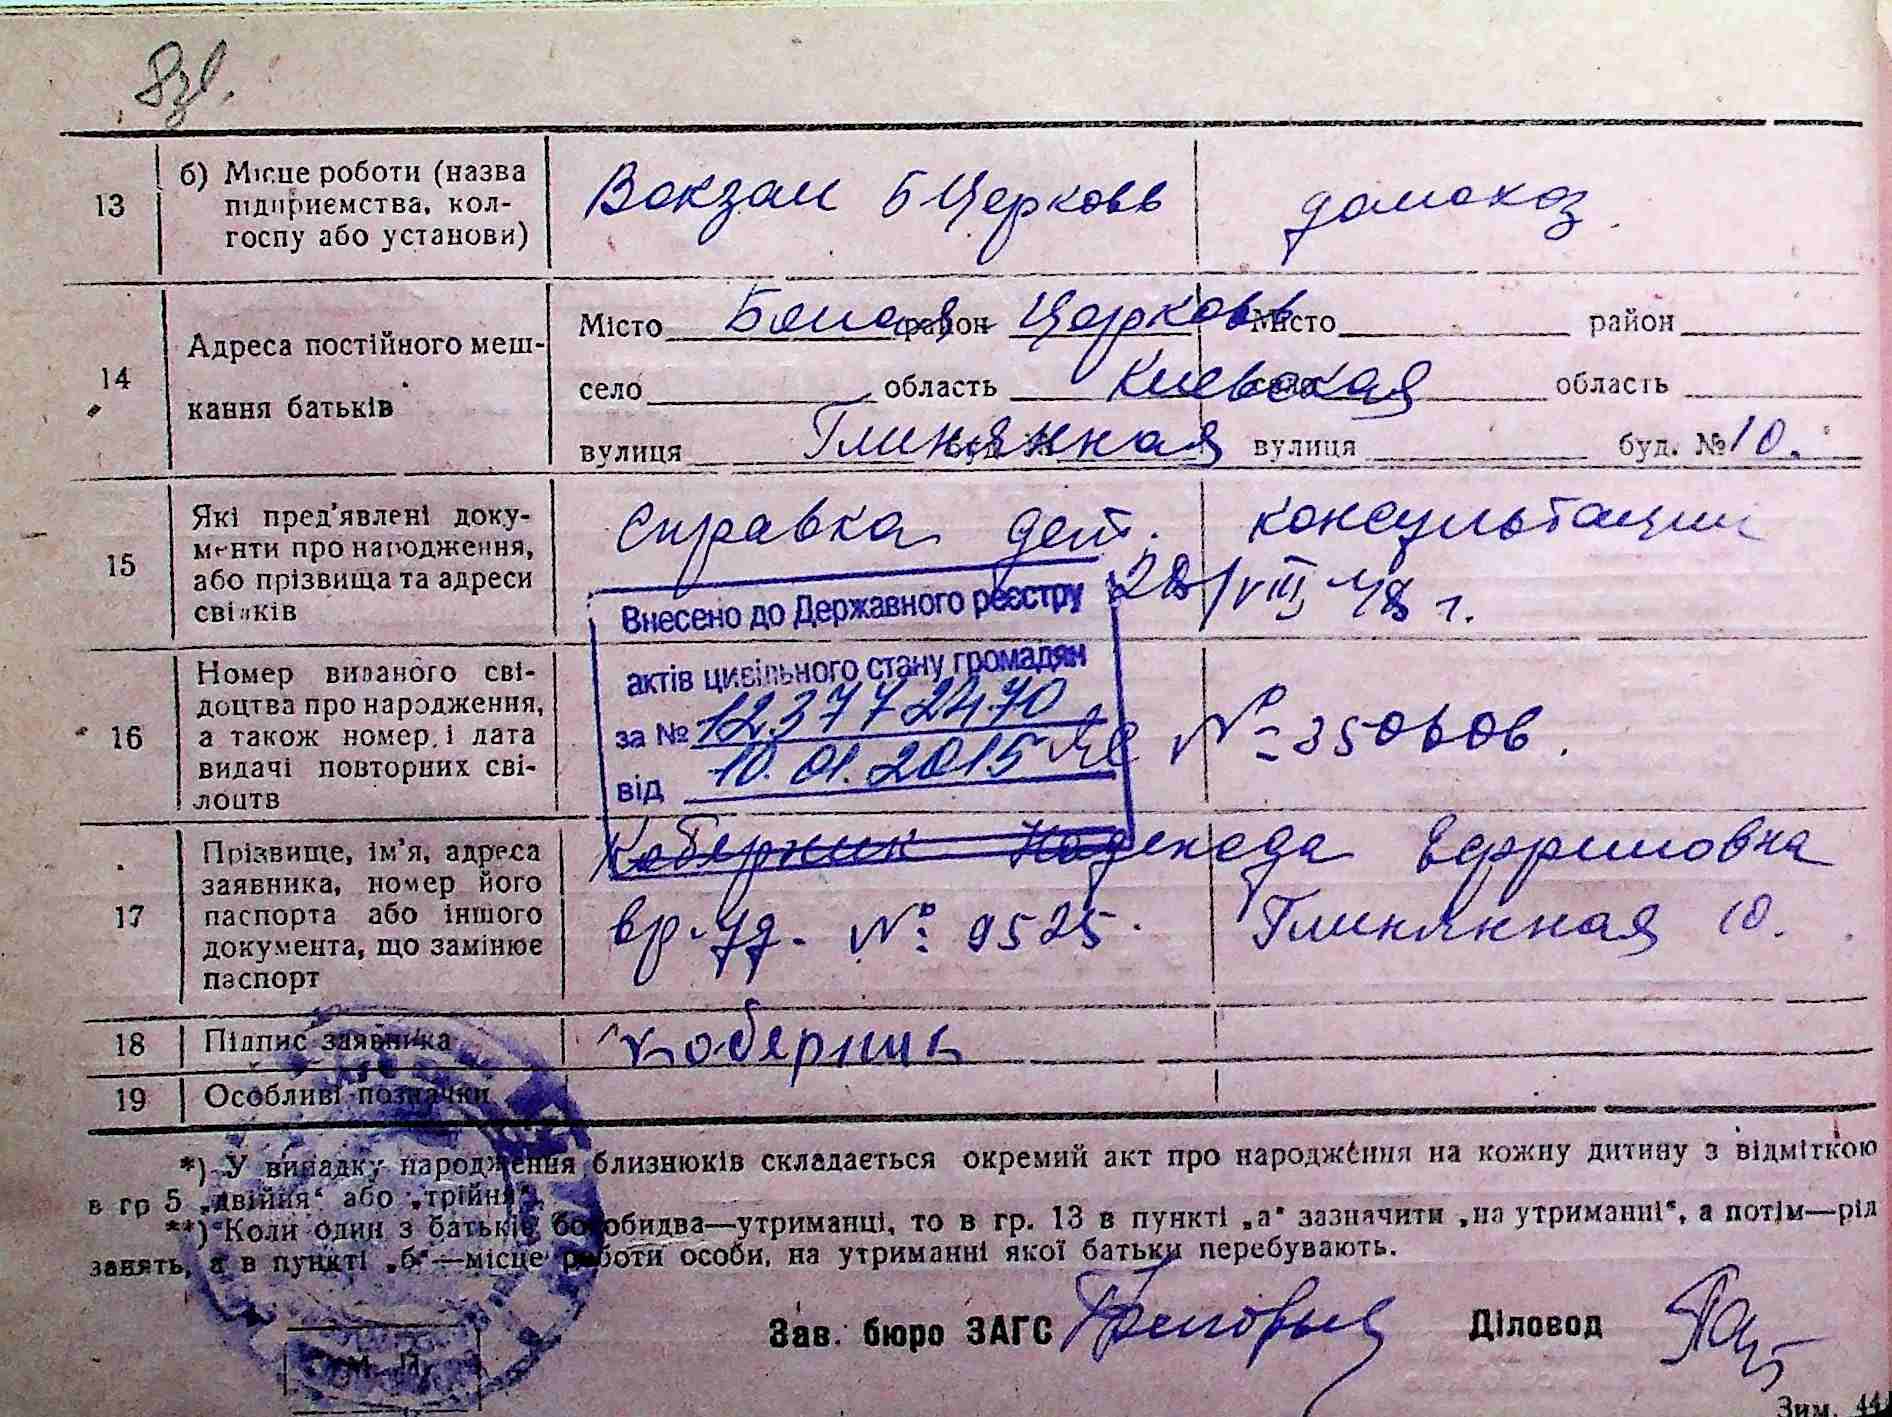 13
б) Місце роботи (назва
підприємства, кол-
госпу або установи)
Вокзал Б Церковь
домохоз.
14
Адреса постійного меш-
кання батьків
Місто Белая район Церковь Місто район
село область Киевская село область
вулиця Глинянная буд. № вулиця буд. № 10.
15
Які пред'явлені доку-
менти про народження,
або прізвища та адреси
свідків
Справка дет. консультации
28/VIII 48 г.
Внесено до Державного реєстру
актів цивільного стану громадян
за № 1237772470
від 10.01.2015
16
Номер виданого сві-
доцтва про народження,
а також номер і дата
видачі повторних сві-
доцтв
ЯС № 350606.
17
Прізвище, ім'я, адреса
заявника, номер його
паспорта або іншого
документа, що замінює
паспорт
Коберник Надежда Ефримовна
вр. уд. № 9525. Глинянная 10.
18
Підпис заявника
Коберник
19
Особливі позначки
*) У випадку народження близнюків складається окремий акт про народження на кожну дитину з відміткою
в гр 5 „двійня“ або „трійня“.
**) Коли один з батьків, бо обидва—утриманці, то в гр. 13 в пункті „а“ зазначити „на утриманні“, а потім—рід
занять, а в пункті „б“—місце роботи особи, на утриманні якої батьки перебувають.
Зав. бюро ЗАГС Діловод
М. П.
Зим.